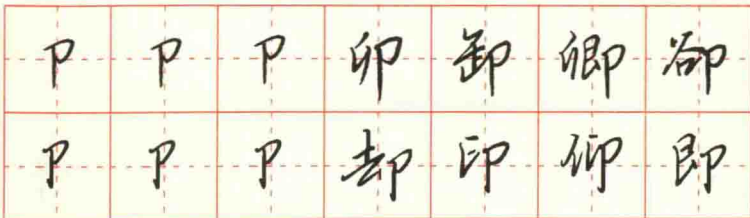 卩卩卩卯卸卿卻
卩卩卩却印仰即